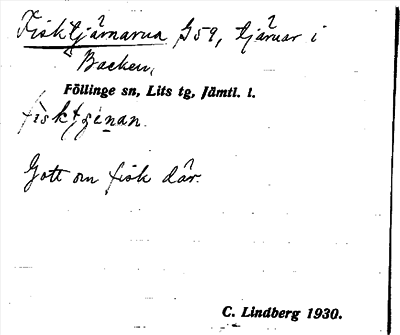 Fisktjärnarna G59, tjärnar i
Backen,
Föllinge sn, Lits tg, Jämtl. l.
Gott om fisk där.
C. Lindberg 1930.